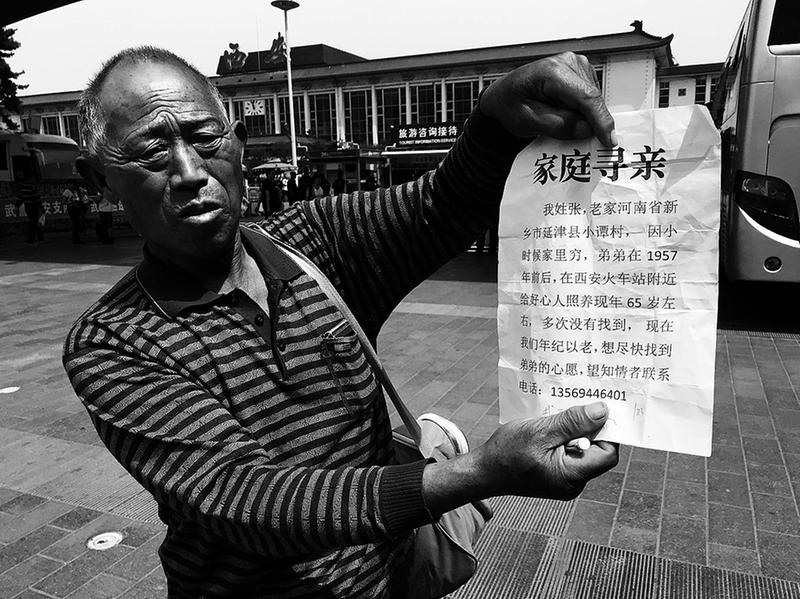 西安
旅游咨询接待
TOURIST INFORMATION SERVICE
家庭寻亲
我姓张，老家河南省新
乡市延津县小谭村，一因小
时候家里穷，弟弟在1957
年前后，在西安火车站附近
给好心人照养现年65岁左
右，多次没有找到，现在
我们年纪以老，想尽快找到
弟弟的心愿，望知情者联系
电话：13569446401